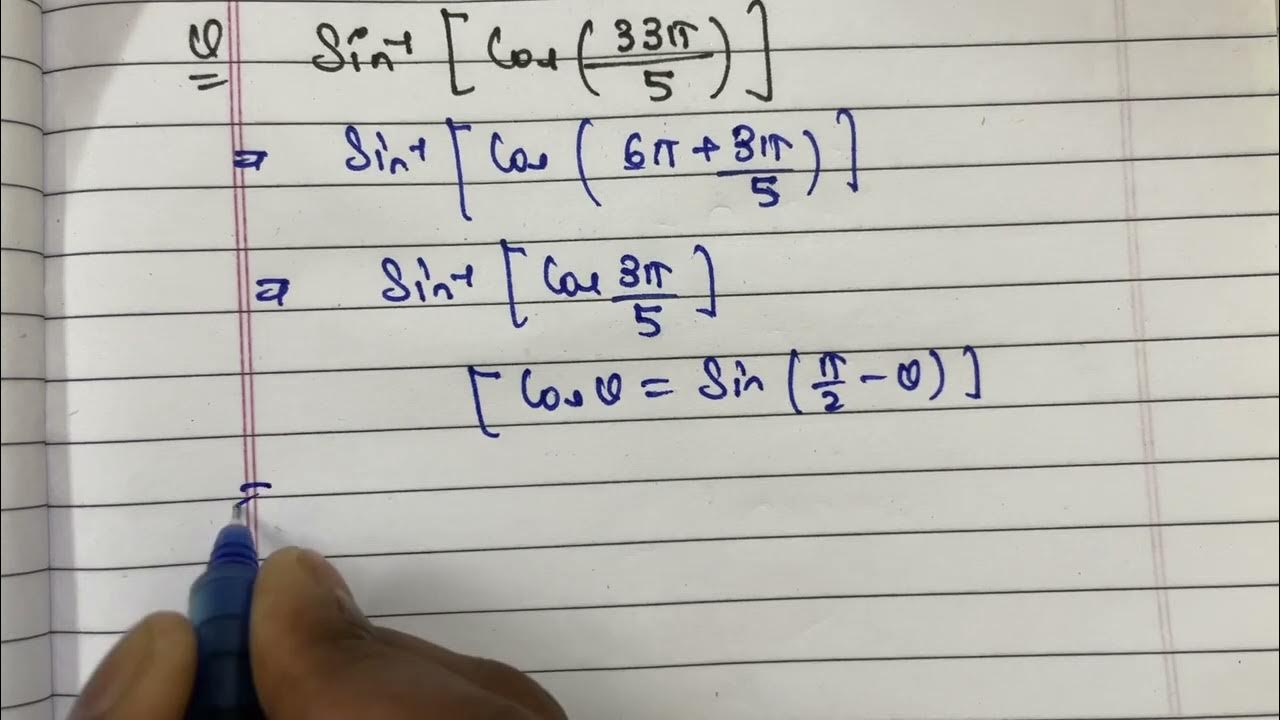 Q Sin⁻¹ [ Cos ( 33π/5 ) ]
⇒ Sin⁻¹ [ Cos ( 6π + 3π/5 ) ]
⇒ Sin⁻¹ [ Cos 3π/5 ]
[ Cos θ = Sin ( π/2 − θ ) ]